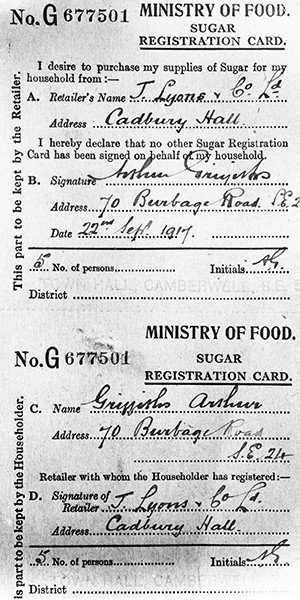 No. G 677501
MINISTRY OF FOOD.
SUGAR
REGISTRATION CARD.
This part to be kept by the Retailer.
I desire to purchase my supplies of Sugar for my
household from:—
A. Retailer's Name J. Lyons & Co Ld.
Address Cadbury Hall
I hereby declare that no other Sugar Registration
Card has been signed on behalf of my household.
B. Signature Arthur Griffiths
Address 70 Burbage Road. S.E. 24
Date 22nd Sept. 1917.
5 No. of persons Initials AG.
District
TOWN HALL, CAMBERWELL, S.E. 5
MINISTRY OF FOOD.
No. G 677501
SUGAR
REGISTRATION CARD.
This part to be kept by the Householder.
C. Name Griffiths Arthur
Address 70 Burbage Road
S.E. 24
Retailer with whom the Householder has registered:—
D. Signature of
Retailer J. Lyons & Co Ld.
Address Cadbury Hall
5 No. of persons Initials AG
District